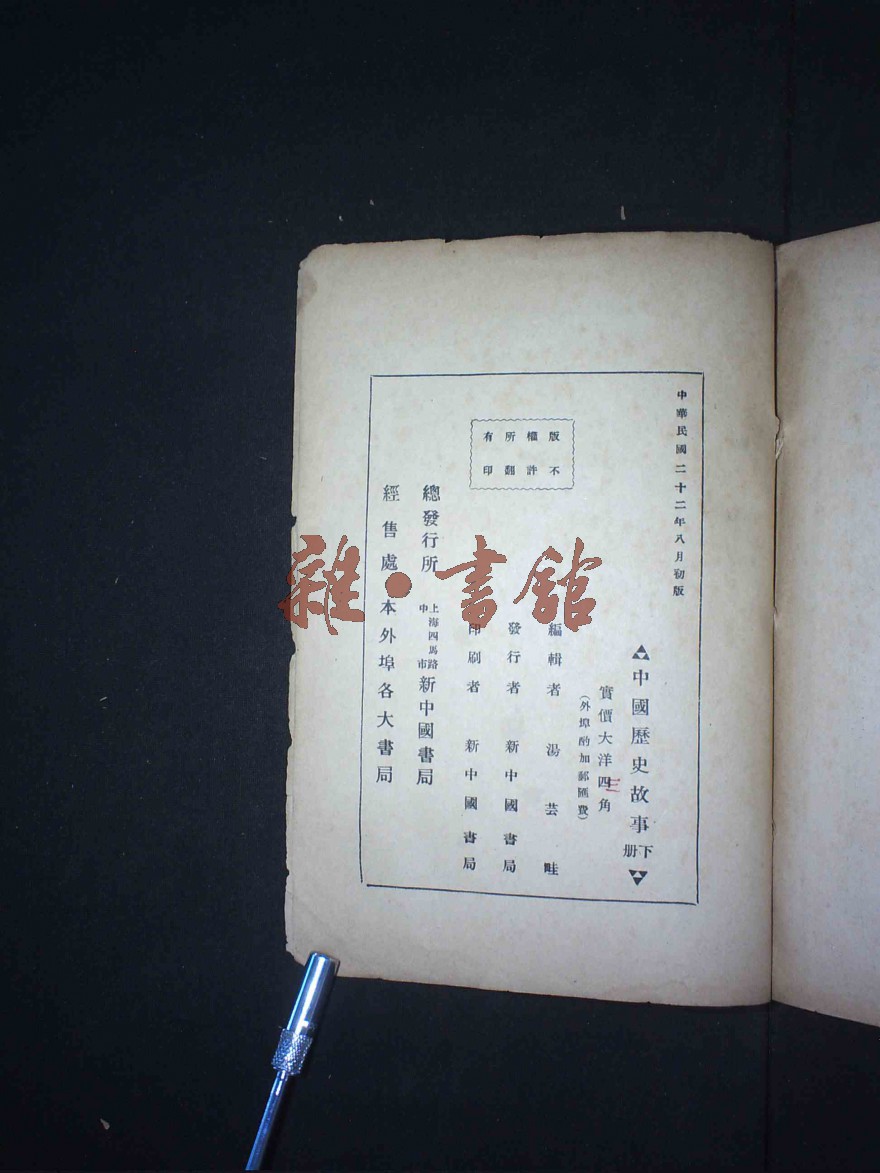 中華民國二十二年八月初版
中國歷史故事下册
實價大洋四角
三
(外埠酌加郵匯費)
編輯者 湯芸畦
發行者 新中國書局
印刷者 新中國書局
版權所有
不許翻印
總發行所 上海四馬路中市 新中國書局
經售處 本外埠各大書局
雜·書館